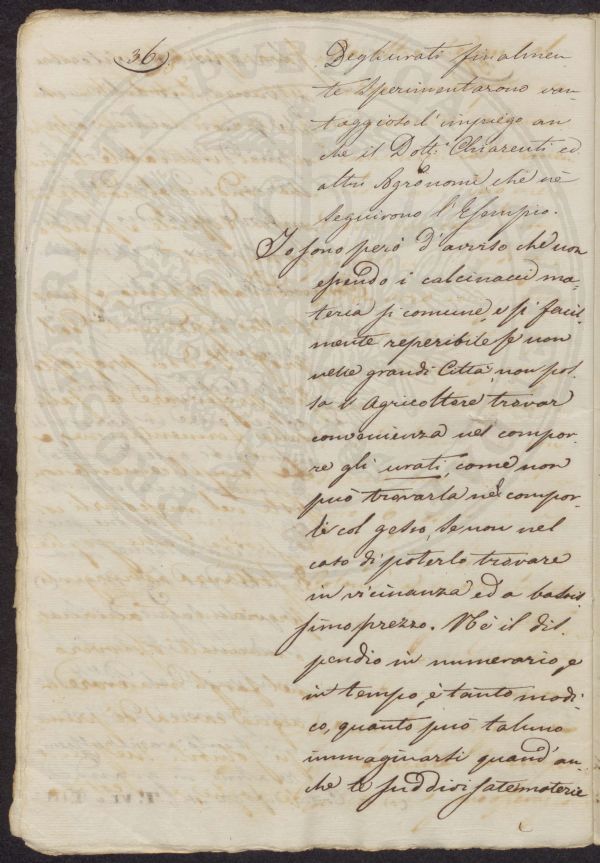 36
Degli urati finalmen-
te sperimentarono van-
taggioso l'impiego an
che il Dott.e Chiarenti ed
altri Agronomi, che nè
seguirono l'Esempio.
Io sono però d'avviso che non
essendo i calcinacci ma-
teria si comune, e si facil-
mente reperibile se non
nelle grandi Città, non pos-
sa l'Agricoltore trovar
convenienza nel compor-
re gli urati, come non
può trovarla nel compor-
li col gesso, se non nel
caso di poterlo trovare
in vicinanza ed a bassis
simo prezzo. Nè il dis-
pendio in numerario, e
in tempo, è tanto modi-
co, quanto può taluno
immaginarsi quand'an-
che le suddivisate materie